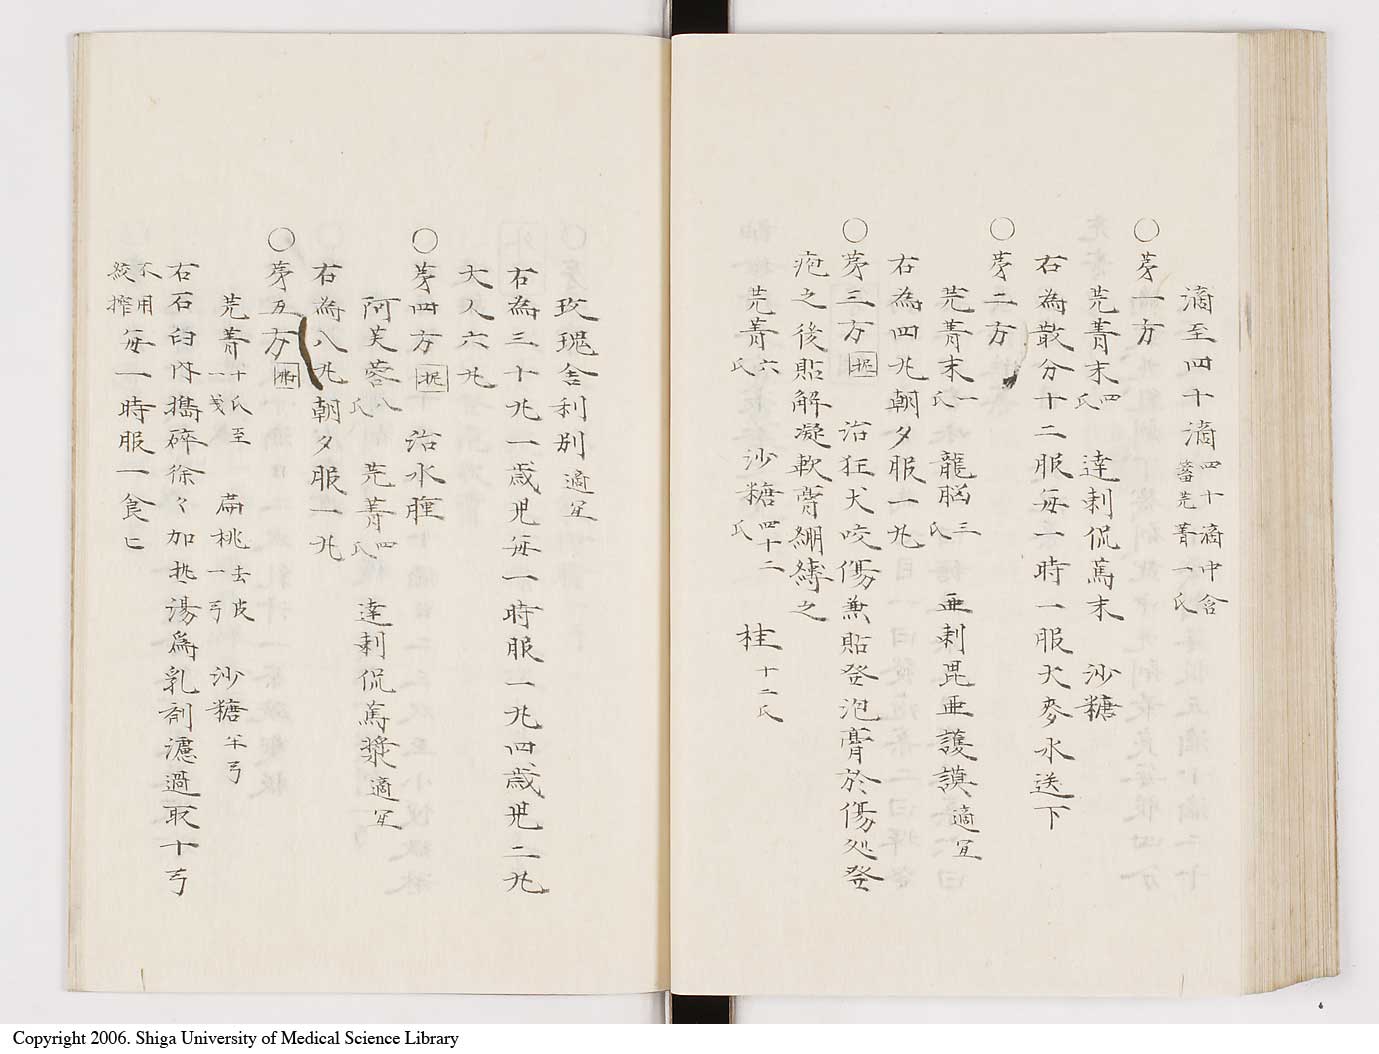 滴至四十滴四十滴中含蓄芫菁一氏
○苐一方
芫菁末四氏 達剌侃萬末 沙糖
右為散分十二服毎一時一服大麥水送下
○苐二方
芫菁末一氏 龍脳三氏 亜剌毘亜護謨適冝
右為四丸朝夕服一丸
○苐三方 治狂犬咬傷兼貼發泡膏於傷処發
疱之後貼解凝軟膏綳縳之
芫菁六氏 沙糖四十二氏 桂十二氏
玫瑰舎利別適冝
右為三十丸一歳児毎一時服一丸四歳児二丸
大人六丸
○苐四方 治水腫
阿芙蓉八氏 芫菁四氏 達剌侃萬漿適冝
右為八丸朝夕服一丸
○苐五方
芫菁十氏至一戔 扁桃去皮一弓 沙糖半弓
右石臼内擣碎徐々加熱湯為乳剤濾過取十弓
不用絞搾毎一時服一食匕
Copyright 2006. Shiga University of Medical Science Library